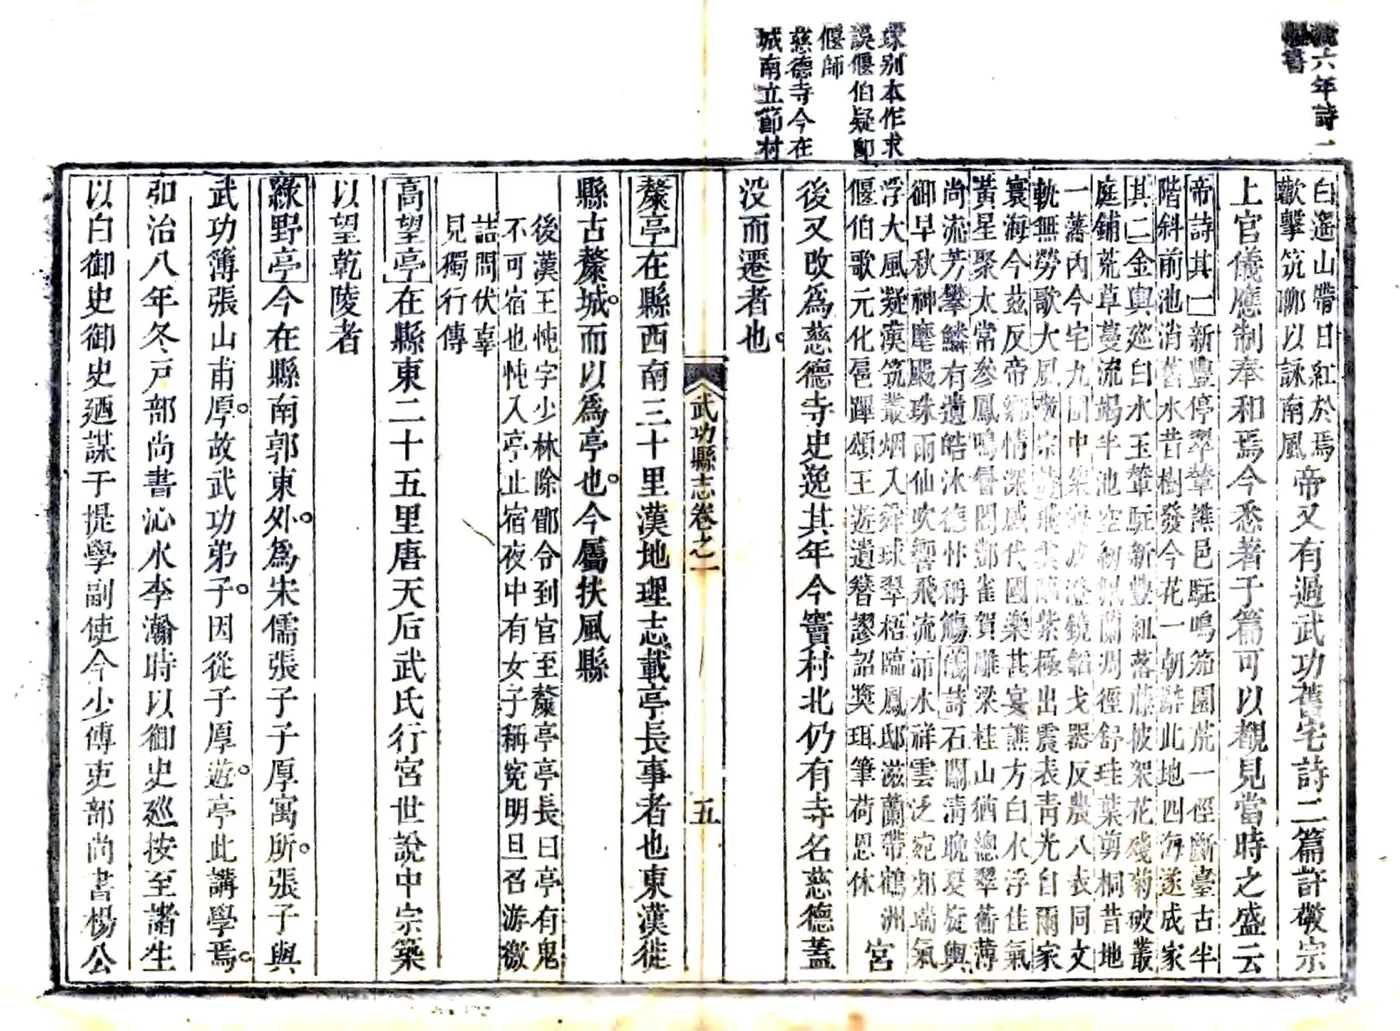 六年詩一
書
球别本作求
誤偃伯疑卽
偃師
慈德寺今在
城南立節村
白遥山帶日紅於焉
歡擊筑聊以詠南風
帝又有過武功舊宅詩二篇許敬宗
上官儀應制奉和焉今悉著于篇可以觀見當時之盛云
帝詩其一新豐停翠輦譙邑駐鳴笳園荒一徑斷臺古半
階斜前池消舊水昔樹發今花一朝辭此地四海遂成家
其二金輿巡白水玉輦駐新豐紐落藤披架花殘菊破叢
庭鋪荒草蔓流竭半池空紉佩蘭凋徑舒珪葉剪桐昔地
一蕃内今宅九圍中架海波澄鏡韜戈器反農八表同文
軌無勞歌大風敬宗詩飛雲臨紫極出震表青光自爾家
寰海今兹反帝鄉情深感代國樂甚宴譙方白水浮佳氣
黃星聚太常參鳳鳴曾閣鄷雀賀雕梁桂山猶總翠蘅薄
尚流芳攀鱗有遺皓沐德忭稱觴儀詩石關清晚夏旋輿
御早秋神麾颺珠雨仙吹響飛流沛水祥雲泛宛郊瑞氣
浮大風凝漢筑叢烟入舜球翠梧臨鳳邸滋蘭帶鶴洲
偃伯歌元化扈蹕頌王遊遺簪謬詔奬珥筆荷恩休
宮
後又改爲慈德寺史逸其年今竇村北仍有寺名慈德蓋
没而遷者也。
武功縣志卷之一
五
斄亭在縣西南三十里漢地理志載亭長事者也東漢徙
縣古斄城。而以爲亭也。今屬扶風縣
後漢王忳字少林除郿令到官至斄亭亭長曰亭有鬼
不可宿也忳入亭止宿夜中有女子稱寃明旦召游徼
詰問伏辜
見獨行傳
高望亭在縣東二十五里唐天后武氏行宮世說中宗築
以望乾陵者
綠野亭今在縣南郭東外。爲宋儒張子子厚寓所。張子與
武功簿張山甫厚。故武功弟子。因從子厚遊。亭此講學焉。
弘治八年冬戸部尚書沁水李瀚時以御史廵按至諸生
以白御史御史廼謀于提學副使今少傅吏部尚書楊公